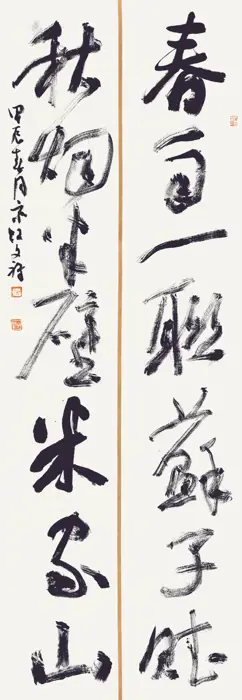 春一聯蘇子賦
秋烟半壁米家山
甲辰春月